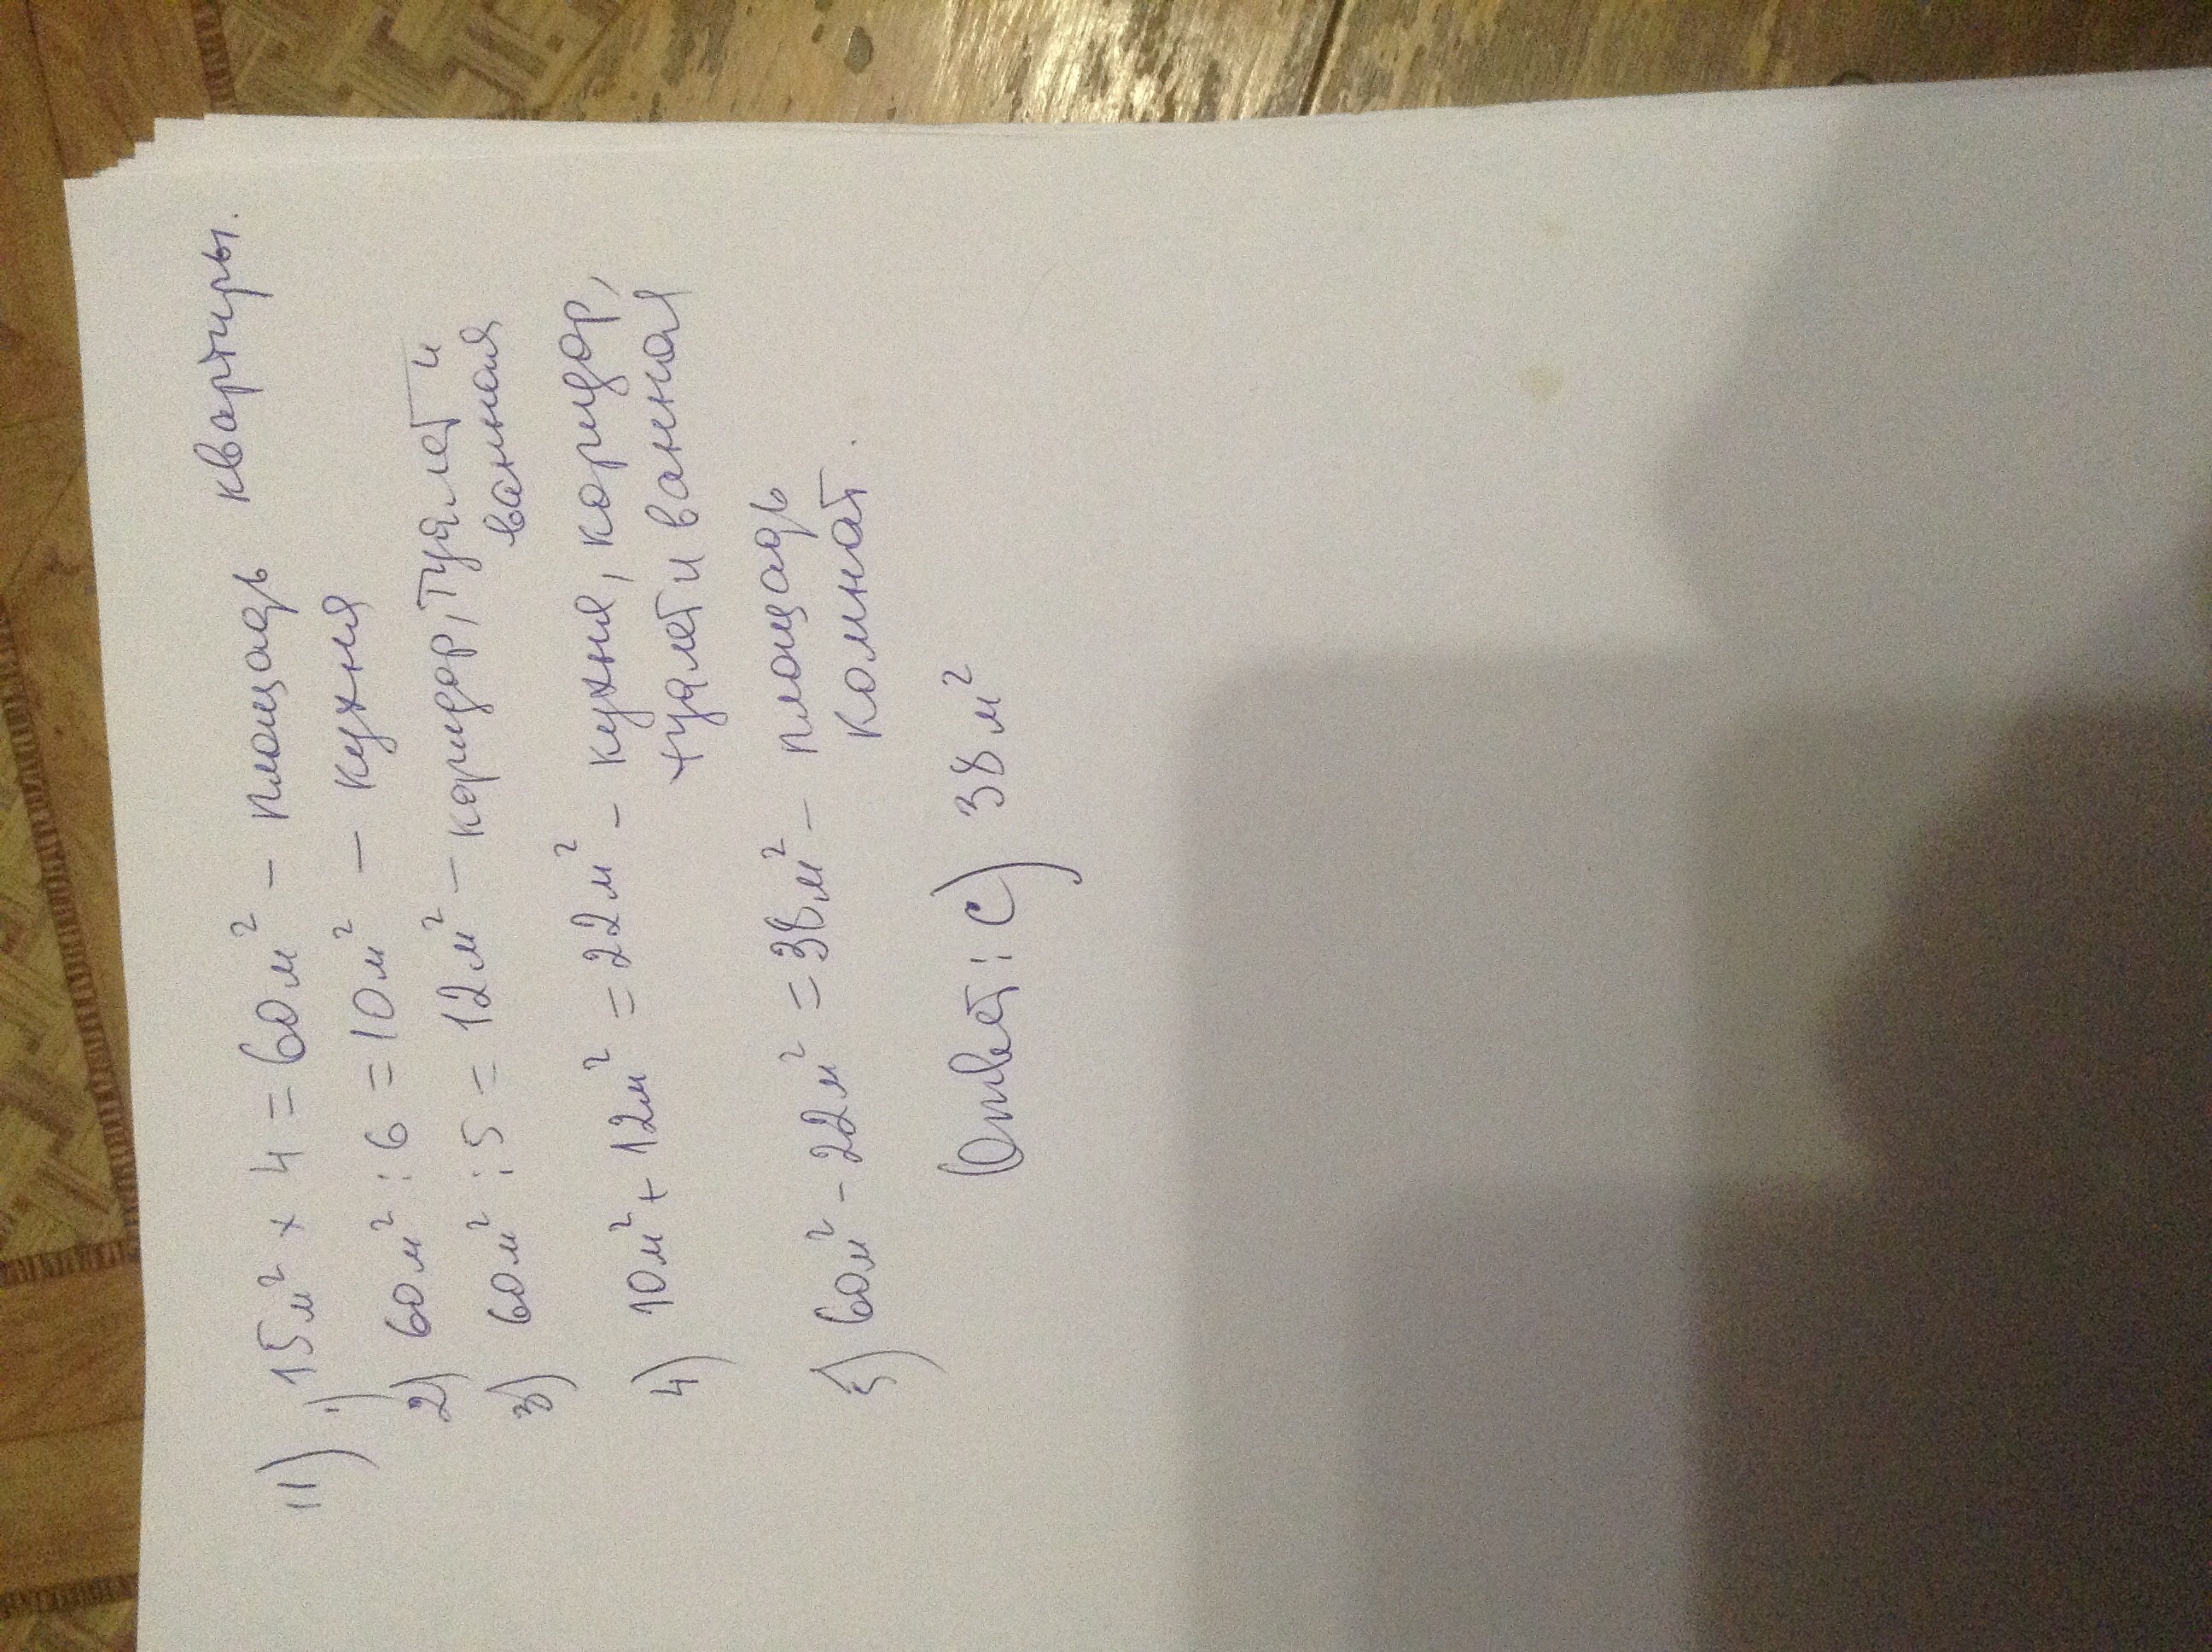 11) 1) 15м² × 4 = 60м² - площадь квартиры.
2) 60м² : 6 = 10м² - кухня
3) 60м² : 5 = 12м² - коридор, туалет и
ванная
4) 10м² + 12м² = 22м² - кухня, коридор,
туалет и ванная
5) 60м² - 22м² = 38м² - площадь
комнат.
Ответ: С) 38м²